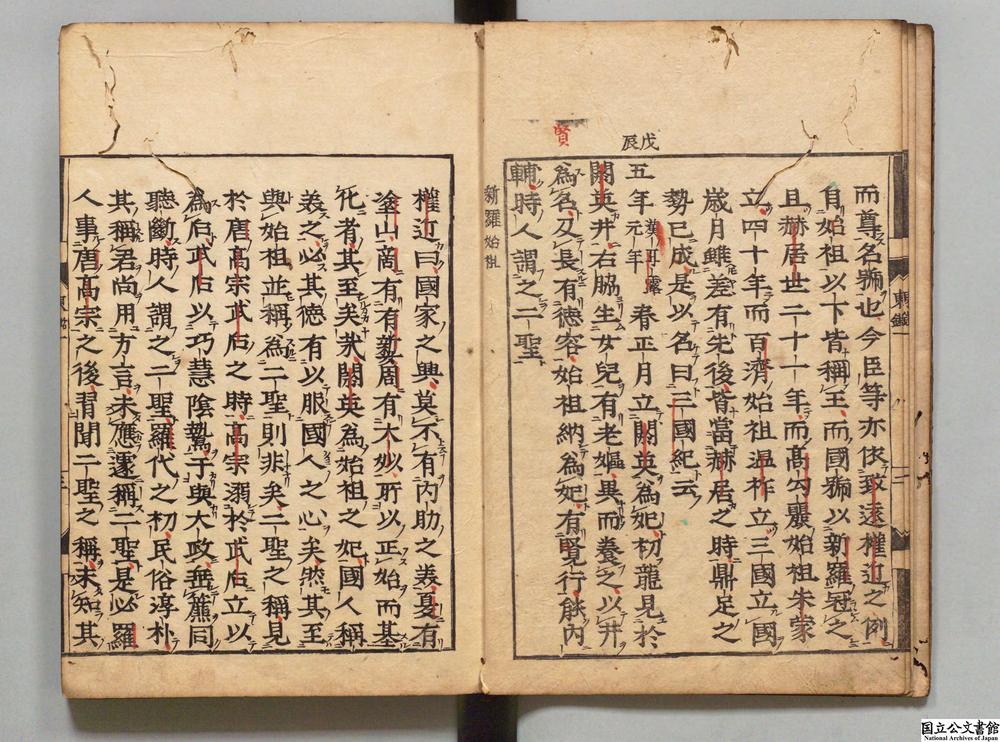 而尊名號也今臣等亦依致遠權近之例
自始祖以下皆稱王而國號以新羅冠之
且赫居世二十一年而高勾麗始祖朱蒙
立四十年而百濟始祖温祚立三國立國
歳月雖差有先後皆當赫居之時鼎足之
勢已成是以名曰三國紀云
戊辰
五年漢五鳳元年春正月立閼英爲妃初龍見於
閼英井右脇生女兒有老嫗異而養之以井
賢
爲名及長有德容始祖納爲妃有賢行能内
輔時人謂之二聖
新羅始祖
權近曰國家之興莫不有内助之羙夏有
塗山商有有㜪周有大姒所以正始而基
化者其至矣哉閼英爲始祖之妃國人稱
羙之必其德有以服國人之心矣然其至
與始祖並稱爲二聖則非矣二聖之稱見
於唐高宗武后之時高宗溺於武后立以
爲后武后以巧慧陰鷙干與大政無簾同
聽斷時人謂之二聖羅代之初民俗淳朴
其稱君尚用方言未應遽稱二聖是必羅
人事唐高宗之後習聞二聖之稱未知其
東鑑一
三
国立公文書館
National Archives of Japan